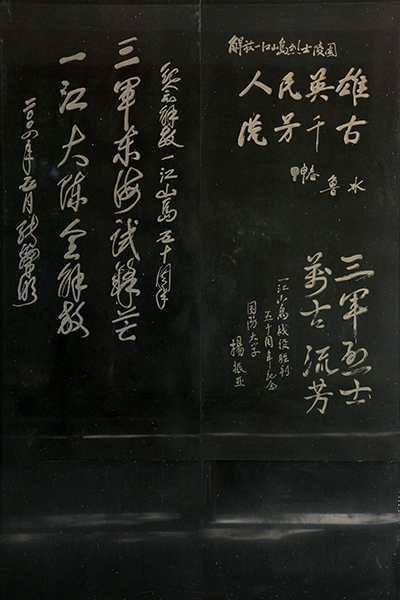 解放一江山岛烈士陵园
人民英雄
流芳千古
鲁水
三军烈士
萬古流芳
一江山岛战役胜利
五十周年纪念
国防大学
楊振亚
纪念解放一江山岛五十周年
三軍东海试锋芒
一江大陈全解放
二〇〇四年五月